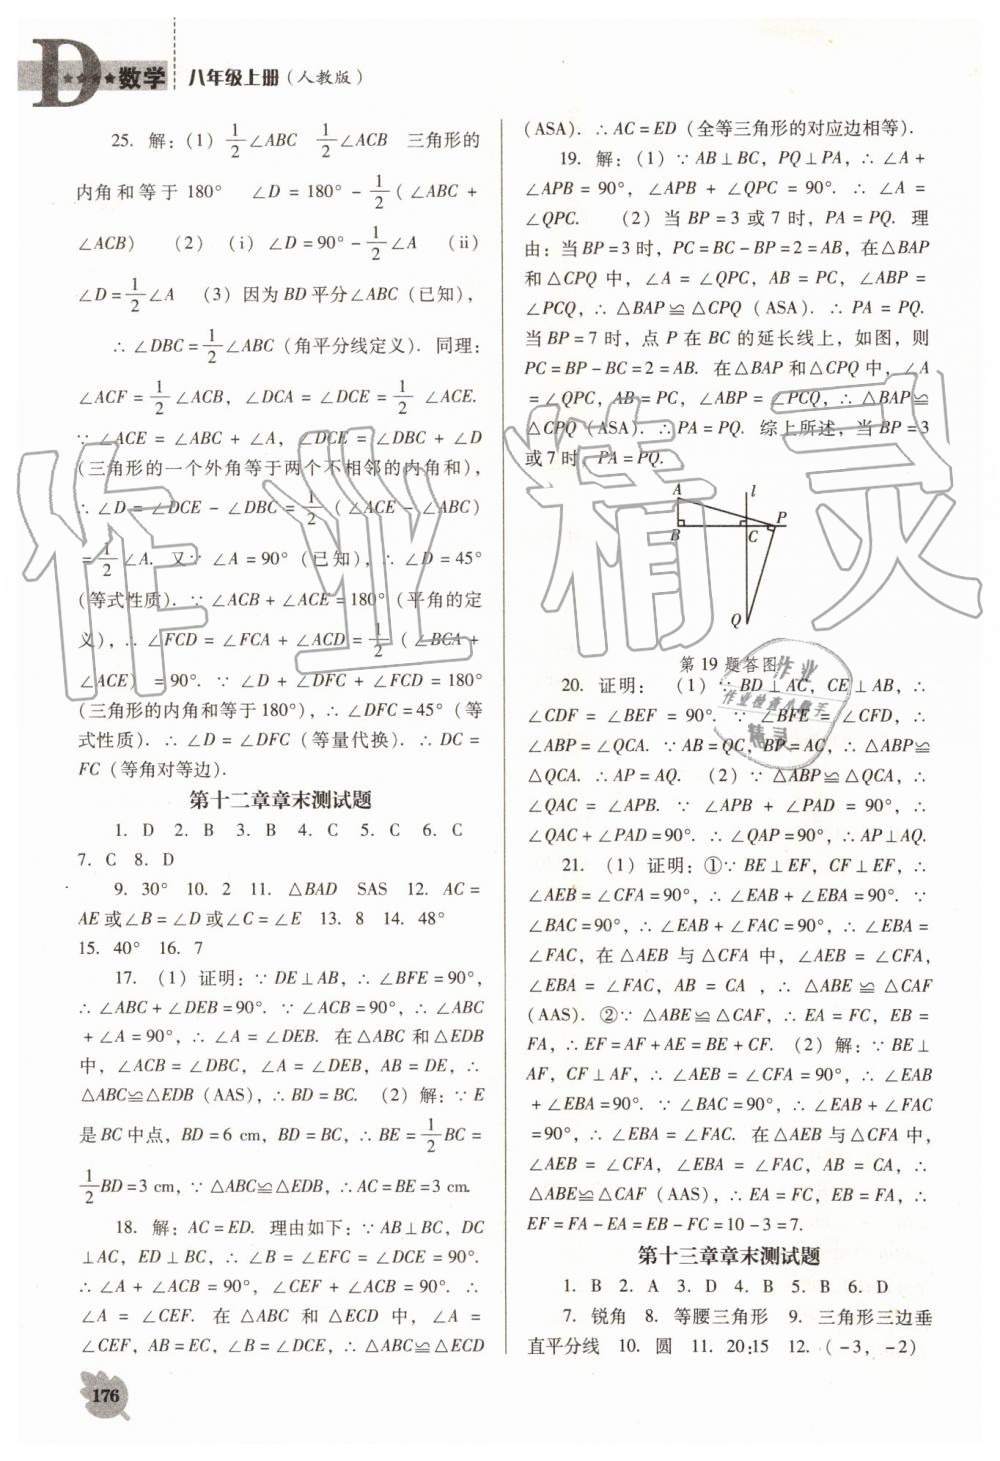 D
数学 八年级上册(人教版)
25. 解:(1) 1/2∠ABC 1/2∠ACB 三角形的
内角和等于180° ∠D=180°-1/2(∠ABC+
∠ACB) (2) (ⅰ)∠D=90°-1/2∠A (ⅱ)
∠D=1/2∠A (3) 因为BD平分∠ABC(已知),
∴∠DBC=1/2∠ABC(角平分线定义). 同理:
∠ACF=1/2∠ACB, ∠DCA=∠DCE=1/2∠ACE.
∵∠ACE=∠ABC+∠A, ∠DCE=∠DBC+∠D
(三角形的一个外角等于两个不相邻的内角和),
∴∠D=∠DCE-∠DBC=1/2(∠ACE-∠ABC)
=1/2∠A. 又∵∠A=90°(已知), ∴∠D=45°
(等式性质). ∵∠ACB+∠ACE=180°(平角的定
义), ∴∠FCD=∠FCA+∠ACD=1/2(∠BCA+
∠ACE)=90°. ∵∠D+∠DFC+∠FCD=180°
(三角形的内角和等于180°), ∴∠DFC=45°(等
式性质). ∴∠D=∠DFC(等量代换). ∴DC=
FC(等角对等边).
第十二章章末测试题
1. D 2. B 3. B 4. C 5. C 6. C
7. C 8. D
9. 30° 10. 2 11. △BAD SAS 12. AC=
AE或∠B=∠D或∠C=∠E 13. 8 14. 48°
15. 40° 16. 7
17. (1) 证明: ∵DE⊥AB, ∴∠BFE=90°,
∴∠ABC+∠DEB=90°. ∵∠ACB=90°, ∴∠ABC
+∠A=90°, ∴∠A=∠DEB. 在△ABC和△EDB
中, ∠ACB=∠DBC, ∠A=∠DEB, AB=DE, ∴
△ABC≌△EDB(AAS), ∴BD=BC. (2) 解: ∵E
是BC中点, BD=6 cm, BD=BC, ∴BE=1/2BC=
1/2BD=3 cm, ∵△ABC≌△EDB, ∴AC=BE=3 cm.
18. 解: AC=ED. 理由如下: ∵AB⊥BC, DC
⊥AC, ED⊥BC, ∴∠B=∠EFC=∠DCE=90°.
∴∠A+∠ACB=90°, ∠CEF+∠ACB=90°. ∴
∠A=∠CEF. 在△ABC和△ECD中, ∠A=
∠CEF, AB=EC, ∠B=∠DCE, ∴△ABC≌△ECD
(ASA). ∴AC=ED(全等三角形的对应边相等).
19. 解: (1) ∵AB⊥BC, PQ⊥PA, ∴∠A+
∠APB=90°, ∠APB+∠QPC=90°. ∴∠A=
∠QPC. (2) 当BP=3或7时, PA=PQ. 理
由: 当BP=3时, PC=BC-BP=2=AB, 在△BAP
和△CPQ中, ∠A=∠QPC, AB=PC, ∠ABP=
∠PCQ, ∴△BAP≌△CPQ(ASA). ∴PA=PQ.
当BP=7时, 点P在BC的延长线上, 如图, 则
PC=BP-BC=2=AB. 在△BAP和△CPQ中, ∠A
=∠QPC, AB=PC, ∠ABP=∠PCQ, ∴△BAP≌
△CPQ(ASA). ∴PA=PQ. 综上所述, 当BP=3
或7时, PA=PQ.
A l
B C P
Q
第19题答图
20. 证明: (1) ∵BD⊥AC, CE⊥AB, ∴
∠CDF=∠BEF=90°. ∵∠BFE=∠CFD, ∴
∠ABP=∠QCA. ∵AB=QC, BP=AC, ∴△ABP≌
△QCA. ∴AP=AQ. (2) ∵△ABP≌△QCA, ∴
∠QAC=∠APB. ∵∠APB+∠PAD=90°, ∴
∠QAC+∠PAD=90°. ∴∠QAP=90°, ∴AP⊥AQ.
21. (1) 证明: ①∵BE⊥EF, CF⊥EF, ∴
∠AEB=∠CFA=90°, ∴∠EAB+∠EBA=90°. ∵
∠BAC=90°, ∴∠EAB+∠FAC=90°, ∴∠EBA=
∠FAC, 在△AEB与△CFA中, ∠AEB=∠CFA,
∠EBA=∠FAC, AB=CA, ∴△ABE≌△CAF
(AAS). ②∵△ABE≌△CAF, ∴EA=FC, EB=
FA, ∴EF=AF+AE=BE+CF. (2) 解: ∵BE⊥
AF, CF⊥AF, ∴∠AEB=∠CFA=90°, ∴∠EAB
+∠EBA=90°. ∵∠BAC=90°, ∴∠EAB+∠FAC
=90°, ∴∠EBA=∠FAC. 在△AEB与△CFA中,
∠AEB=∠CFA, ∠EBA=∠FAC, AB=CA, ∴
△ABE≌△CAF(AAS), ∴EA=FC, EB=FA, ∴
EF=FA-EA=EB-FC=10-3=7.
第十三章章末测试题
1. B 2. A 3. D 4. B 5. B 6. D
7. 锐角 8. 等腰三角形 9. 三角形三边垂
直平分线 10. 圆 11. 20:15 12. (-3, -2)
176
作业精灵
作业
作业检查小助手
精灵